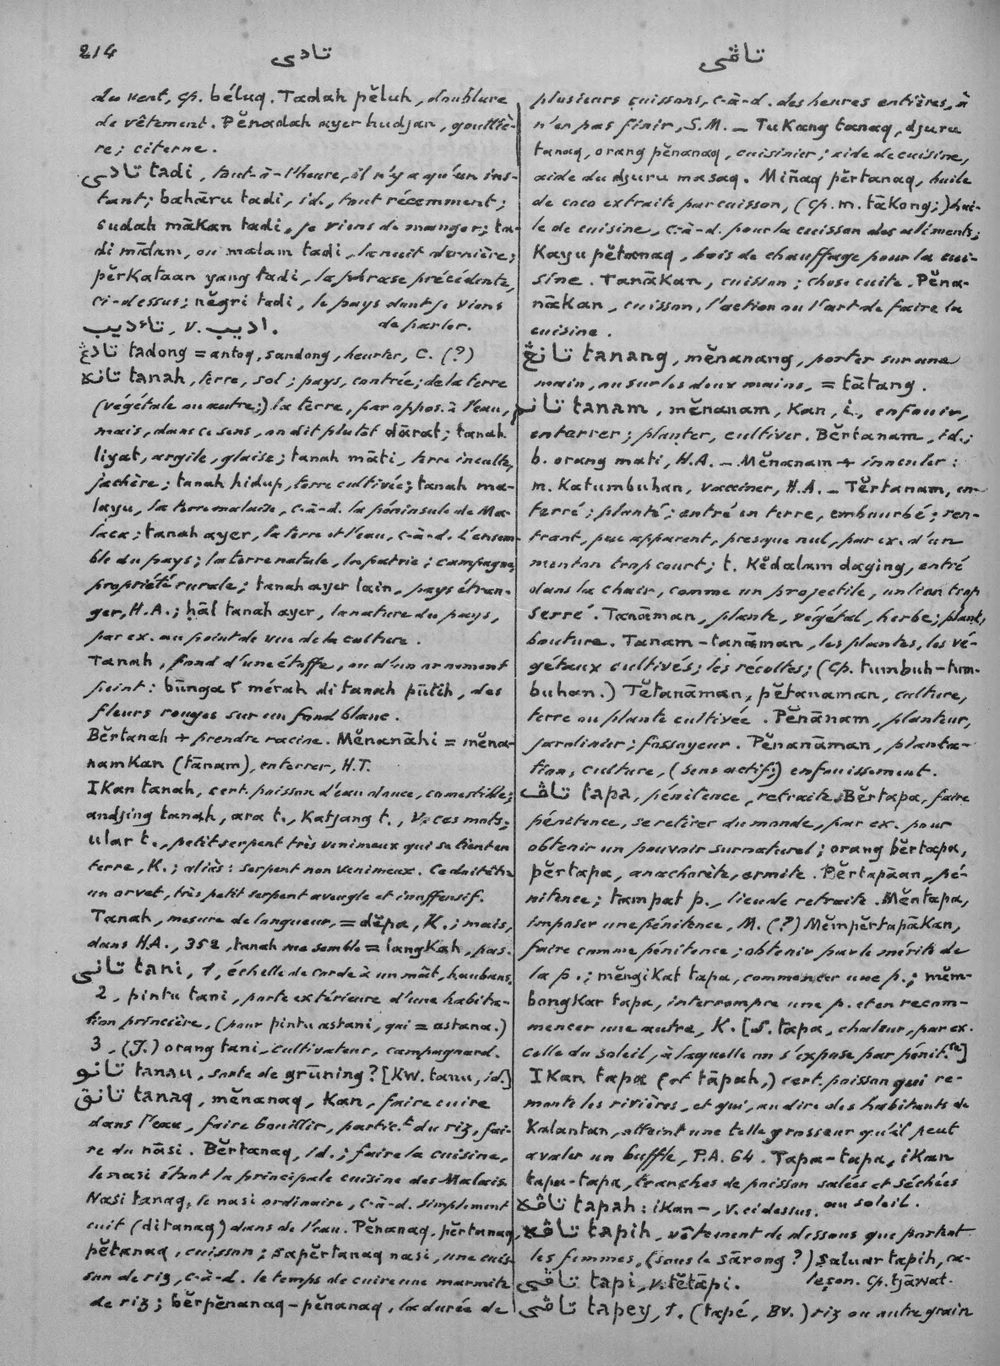 214
تادی
تاڤی
du vent, cp. béluq. Tadah pĕluh, doublure
de vêtement. Pĕnadah ayer hudjan, gouttiè-
re; citerne.
تادی tadi, tout-à-l'heure, il n'y a qu'un ins-
tant; bahāru tadi, id., tout récemment;
sudah mākan tadi, je viens de manger; ta-
di mālam, ou malam tadi, la nuit dernière;
pĕrKataan yang tadi, la phrase précédente,
ci-dessus; nĕgri tadi, le pays dont je viens
de parler.
تاءديب, v. اديب.
تادڠ tadong = antoq, sandong, heurter, C. (?)
تانه tanah, terre, sol; pays, contrée; de la terre
(végétale ou autre;) la terre, par oppos. à l'eau,
mais, dans ce sens, on dit plutôt dārat; tanah
liyat, argile, glaise; tanah māti, terre inculte,
jachère; tanah hidup, terre cultivée; tanah ma-
layu, la terre malaise, c-à-d. la péninsule de Ma-
laca; tanah ayer, la terre et l'eau, c-à-d. l'ensem-
ble du pays; la terre natale, la patrie; campagne,
propriété rurale; tanah ayer lain, pays étran-
ger, H.A.; hāl tanah ayer, la nature du pays,
par ex. au point de vue de la culture.
Tanah, fond d'une étoffe, ou d'un ornement
peint: būnga² mérah di tanah pūtih, des
fleurs rouges sur un fond blanc.
Bĕrtanah + prendre racine. Mĕnanāhi = mĕna-
namKan (tānam), enterrer, H.T.
IKan tanah, cert. poisson d'eau douce, comestible;
andjing tanah, ara t., Katjang t., V. ces mots;
ular t., petit serpent très venimeux qui se tient en
terre, K.; aliàs: serpent non venimeux. Ce doit être
un orvet, très petit serpent aveugle et inoffensif.
Tanah, mesure de longueur, = dĕpa, K.; mais,
dans H.A., 352, tanah me semble = langKah, pas.
تانی tani, 1, échelle de corde à un mât, haubans.
2, pintu tani, porte extérieure d'une habita-
tion princière, (pour pintu astani, qui = astana.)
3, (J.) orang tani, cultivateur, campagnard.
تانو tanau, sorte de grūning? [KW. tanu, id.]
تانق tanaq, mĕnanaq, Kan, faire cuire
dans l'eau, faire bouillir, partic.t du riz, fai-
re du nāsi. Bĕrtanaq, id.; faire la cuisine,
le nasi étant la principale cuisine des Malais.
Nasi tanaq, le nasi ordinaire, c-à-d. simplement
cuit (ditanaq) dans de l'eau. Pĕnanaq, pĕrtanaq,
pĕtanaq, cuisson; sapĕrtanaq nasi, une cuis-
son de riz, c-à-d. le temps de cuire une marmite
de riz; bĕrpĕnanaq-pĕnanaq, la durée de
plusieurs cuissons, c-à-d. des heures entières, à
n'en pas finir, S.M. – TuKang tanaq, djuru
tanaq, orang pĕnanaq, cuisinier; aide de cuisine,
aide du djuru masaq. Miñaq pĕrtanaq, huile
de coco extraite par cuisson, (cp. m. tāKong;) hui-
le de cuisine, c-à-d. pour la cuisson des aliments;
Kayu pĕtanaq, bois de chauffage pour la cui-
sine. TanāKan, cuisson; chose cuite. Pĕna-
nāKan, cuisson, l'action ou l'art de faire la
cuisine.
تانڠ tanang, mĕnanang, porter sur une
main, ou sur les deux mains, = tātang.
تانم tanam, mĕnanam, Kan, i, enfouir,
enterrer; planter, cultiver. Bĕrtanam, id.;
b. orang mati, H.A. – Mĕnanam + inoculer:
m. Katumbuhan, vacciner, H.A. – Tĕrtanam, en-
terré; planté; entré en terre, embourbé; ren-
trant, peu apparent, presque nul, par ex. d'un
menton trop court; t. Kĕdalam daging, entré
dans la chair, comme un projectile, un lien trop
serré. Tanāman, plante, végétal, herbe; plant,
bouture. Tanam-tanāman, les plantes, les vé-
gétaux cultivés; les récoltes; (cp. tumbuh-tum-
buhan.) Tĕtanāman, pĕtanaman, culture,
terre ou plante cultivée. Pĕnānam, planteur,
jardinier; fossoyeur. Pĕnanāman, planta-
tion, culture, (sens actif;) enfouissement.
تاڤ tapa, pénitence, retraite. Bĕrtapa, faire
pénitence, se retirer du monde, par ex. pour
obtenir un pouvoir surnaturel; orang bĕrtapa,
pĕrtapa, anachorète, ermite. Pĕrtapāan, pé-
nitence; tampat p., lieu de retraite. Mĕntapa,
imposer une pénitence, M. (?) MĕmpĕrtapāKan,
faire comme pénitence; obtenir par le mérite de
la p.; mĕngiKat tapa, commencer une p.; mĕm-
bongKar tapa, interrompre une p. et en recom-
mencer une autre, K. [S. tapa, chaleur, par ex.
celle du soleil, à laquelle on s'expose par pénit.ce]
IKan tapa (et tāpah,) cert. poisson qui re-
monte les rivières, et qui, au dire des habitants de
Kalantan, atteint une telle grosseur qu'il peut
avaler un buffle, P.A. 64. Tapa-tapa, iKan
tapa-tapa, tranches de poisson salées et séchées
au soleil.
تاڤه tapah: iKan –, V. ci dessus.
تاڤيه tapih, vêtement de dessous que portent
les femmes, (sous le sārong?) saluar tapih, ca-
leçon. Cp. tjāwat.
تاڤی tapi, v. tĕtāpi.
تاڤی tapey, 1. (tapé, BV.) riz ou autre grain